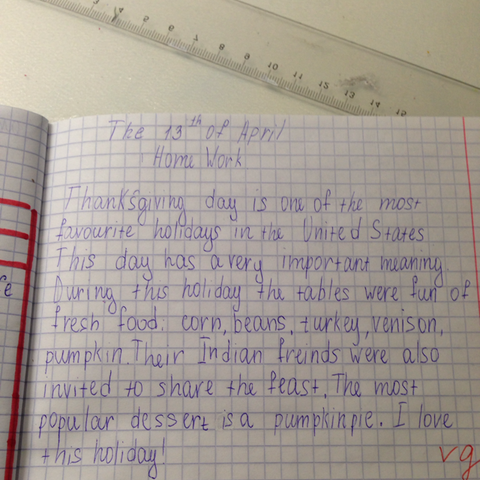 4 5 6 7 8 9 10 11 12 13 14 15
The 13th of April
Home Work
Thanksgiving day is one of the most
favourite holidays in the United States
This day has a very important meaning.
During this holiday the tables were fun of
fresh food: corn, beans, turkey, venison,
pumpkin. Their Indian freinds were also
invited to share the feast. The most
popular dessert is a pumpkinpie. I love
this holiday!
vg